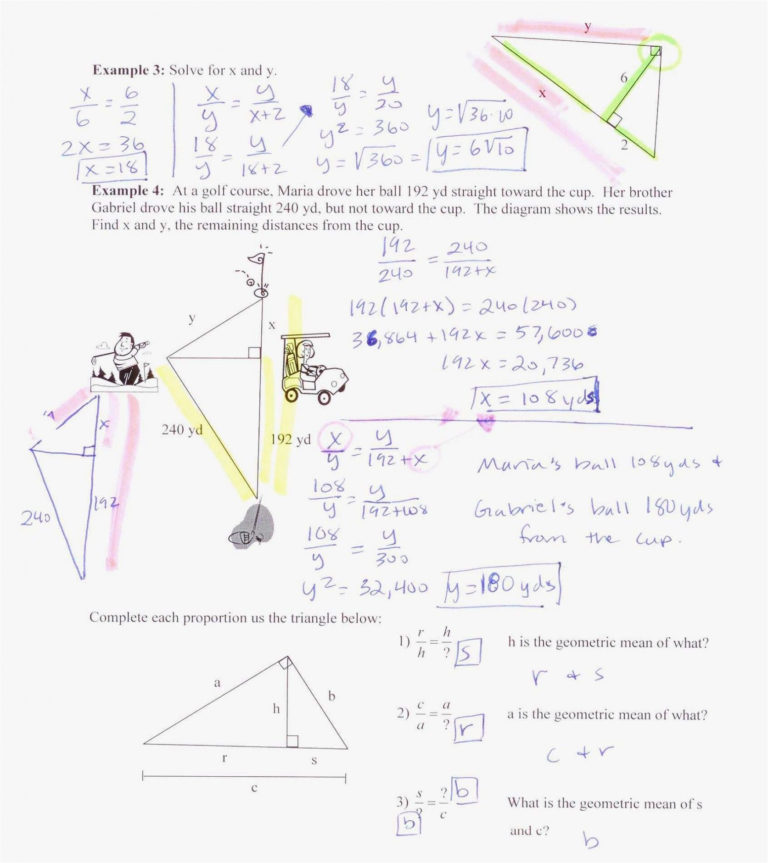 y
Example 3: Solve for x and y.
6
x
2
x/6 = 6/2
2x = 36
x = 18
x/y = y/x+2
18/y = y/18+2
18/y = y/20
y² = 360
y = √360 = y = 6√10
y = √36·10
Example 4: At a golf course, Maria drove her ball 192 yd straight toward the cup. Her brother
Gabriel drove his ball straight 240 yd, but not toward the cup. The diagram shows the results.
Find x and y, the remaining distances from the cup.
192/240 = 240/192+x
192(192+x) = 240(240)
36,864 + 192x = 57,600
192x = 20,736
x = 108 yds
y
x
240 yd
192 yd
y
x
240
192
x/y = y/192+x
108/y = y/192+108
108/y = y/300
y² = 32,400
y = 180 yds
Maria's ball 108 yds &
Gabriel's ball 180 yds
from the cup.
Complete each proportion us the triangle below:
a
b
h
r
s
c
1) r/h = h/? s
h is the geometric mean of what?
r & s
2) c/a = a/? r
a is the geometric mean of what?
c & r
3) s/? = ?/c b
b
What is the geometric mean of s
and c?
b